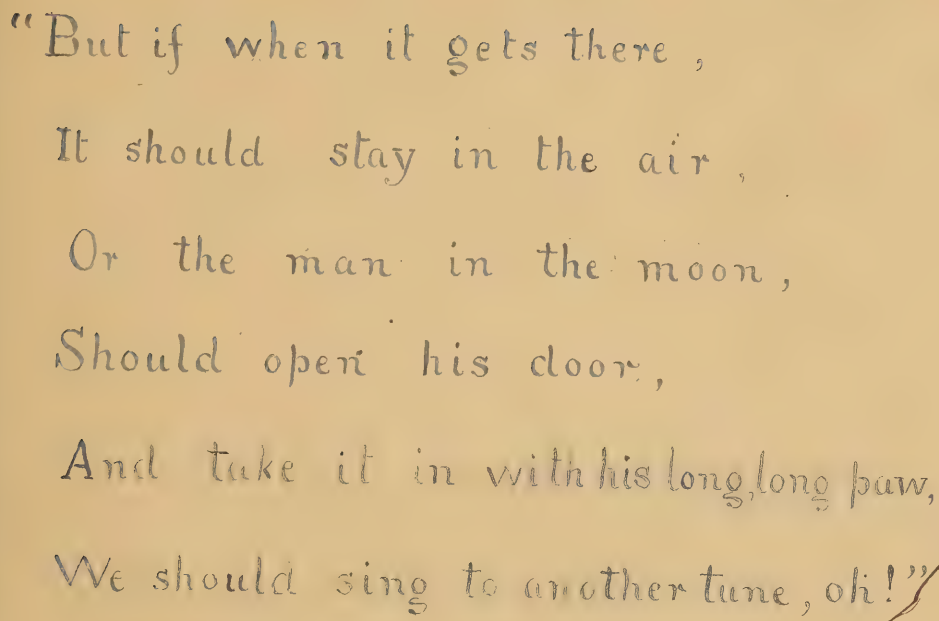 “But if when it gets there,
It should stay in the air,
Or the man in the moon,
Should open his door,
And take it in with his long, long paw,
We should sing to another tune, oh!”